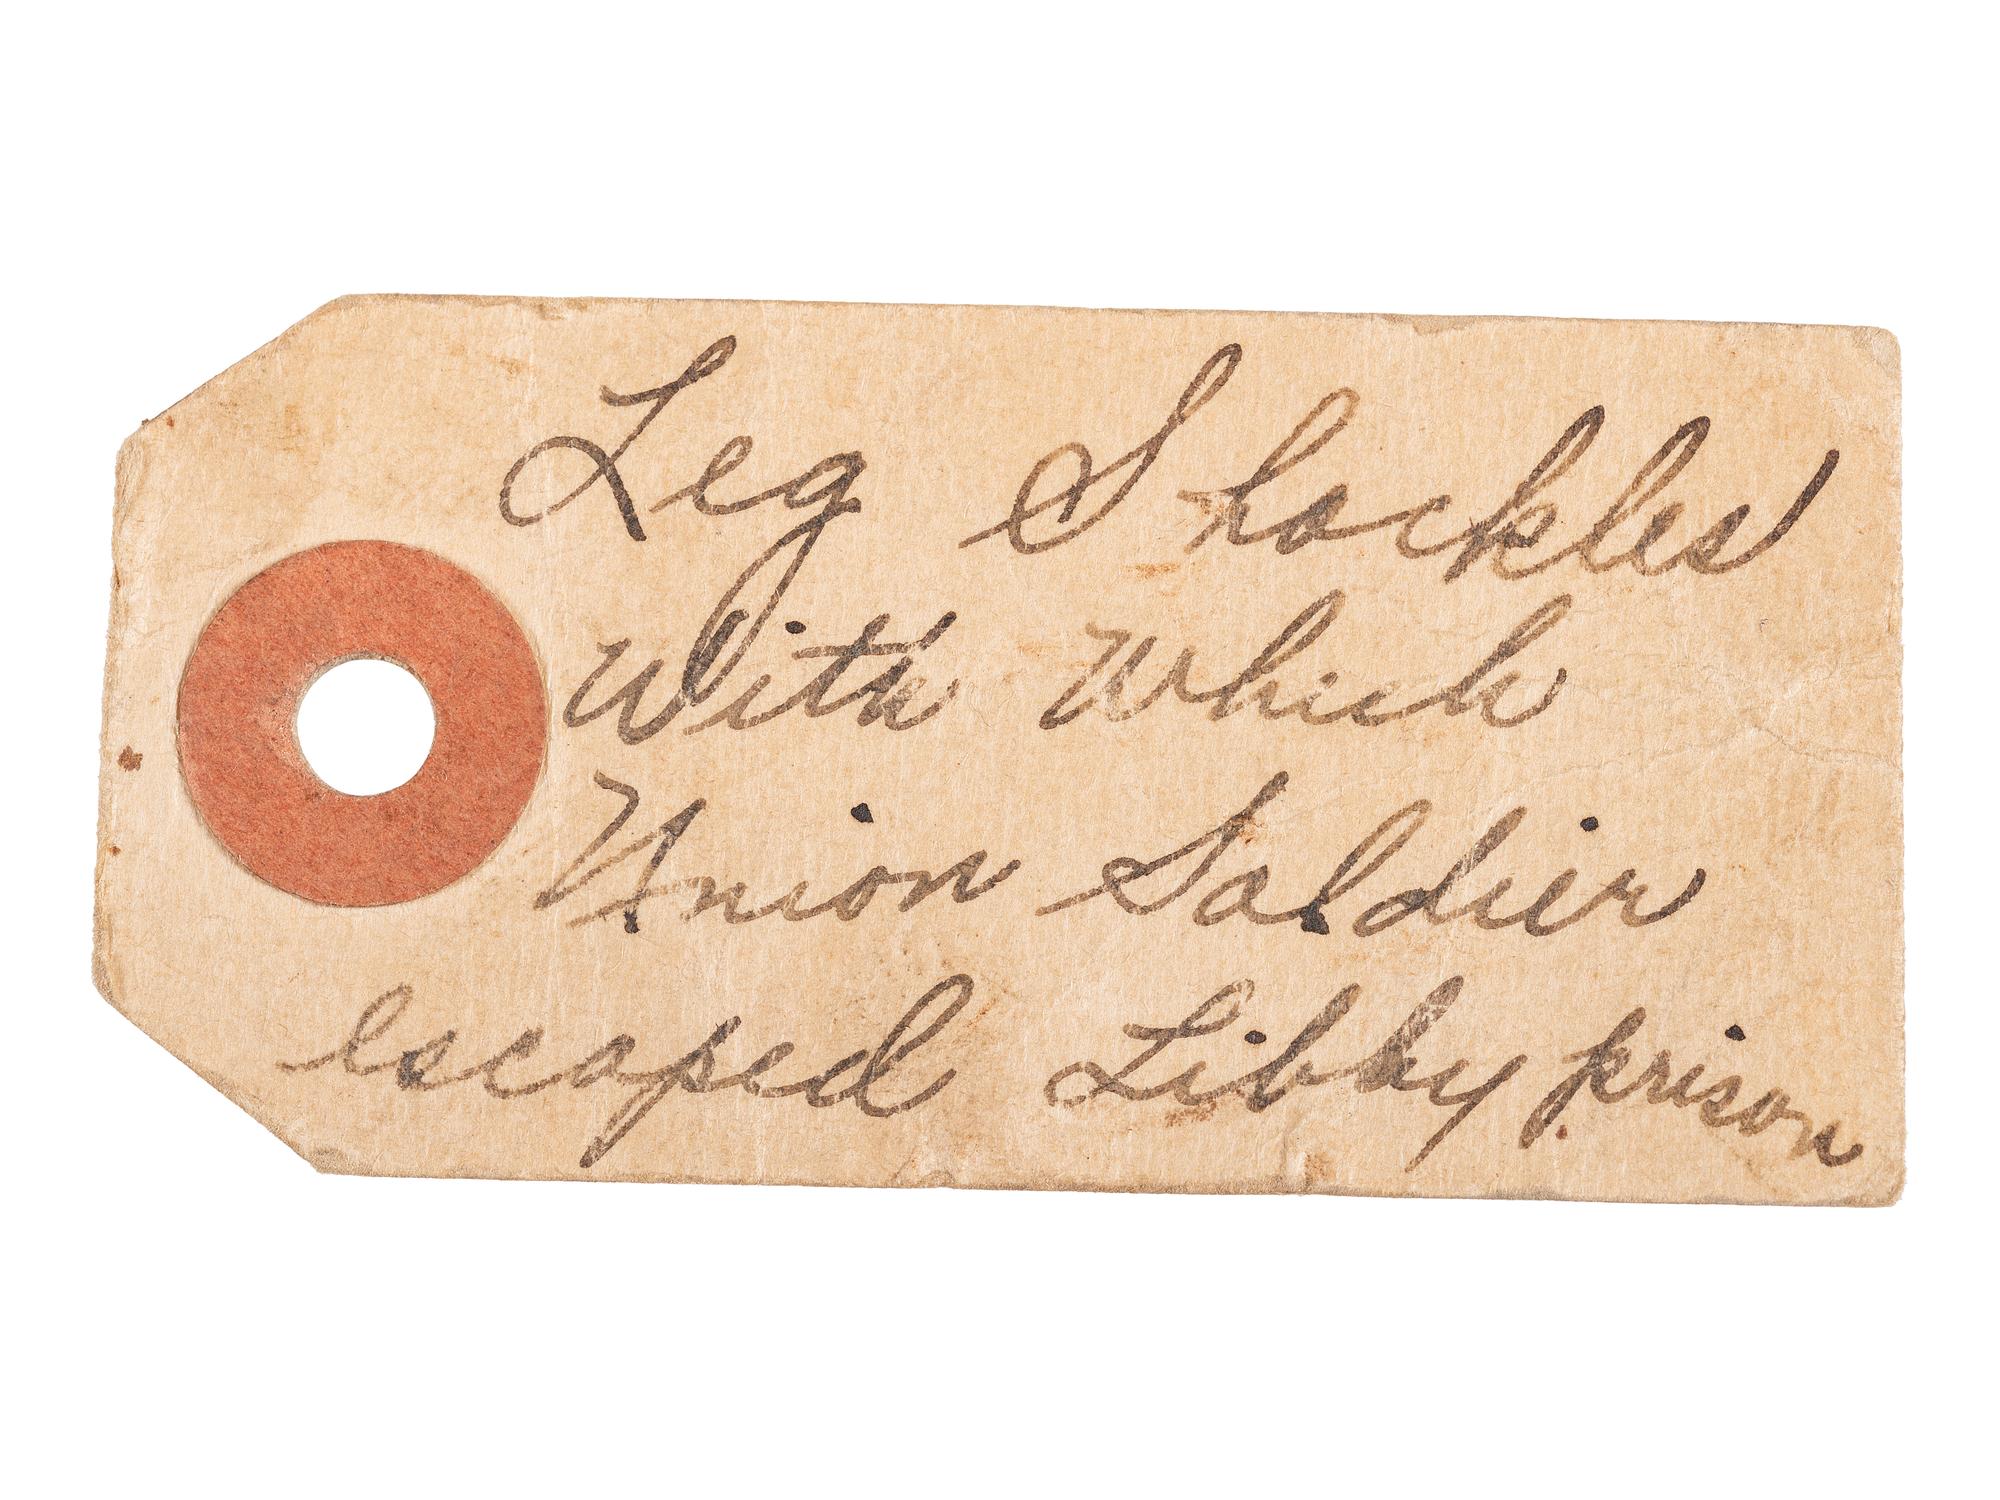 Leg Shackles
With Which
Union Soldier
escaped Libby prison